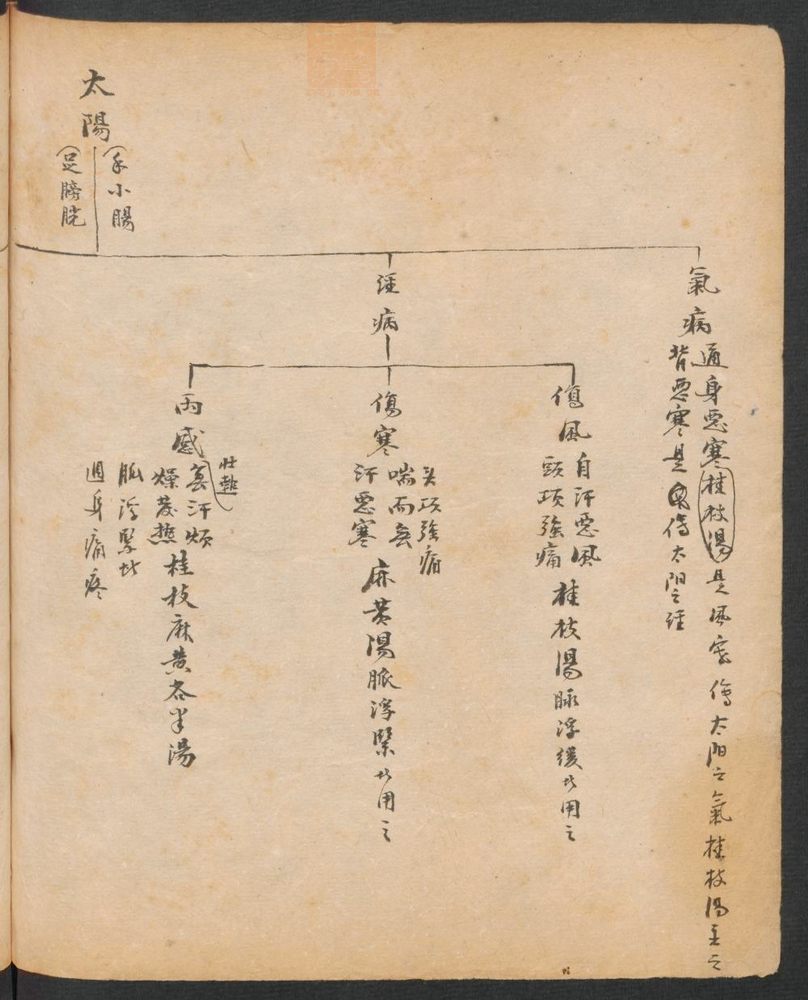 太陽
(手小腸
(足膀胱
氣病
通身惡寒桂枝湯是風寒傷太阳之氣桂枝湯主之
背惡寒是傷太阳之經
經病
傷風
自汗惡風
頭項強痛
桂枝湯脉浮緩者用之
傷寒
头項強痛
喘而無
汗惡寒
麻黄湯脈浮緊者用之
兩感
壮熱
無汗烦
燥發熱
脈浮緊者
週身痛疼
桂枝麻黄各半湯